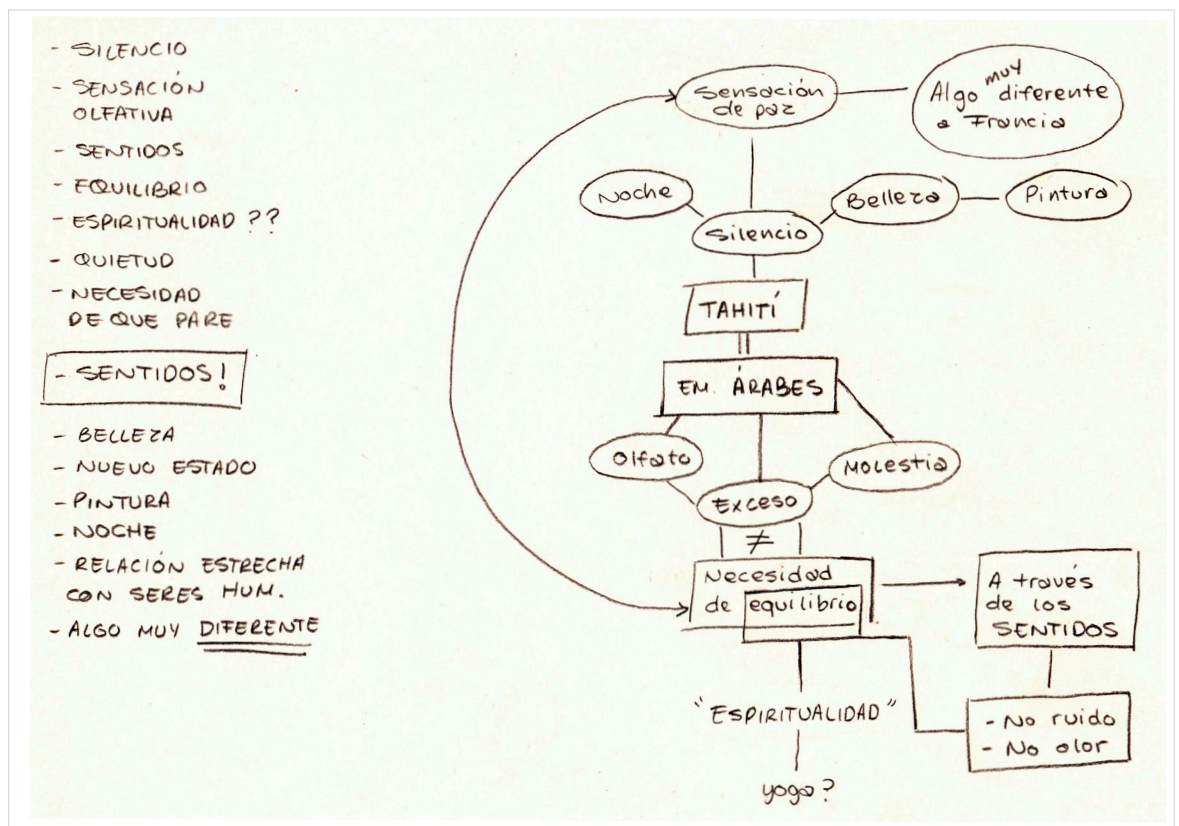 - SILENCIO
- SENSACIÓN
OLFATIVA
- SENTIDOS
- EQUILIBRIO
- ESPIRITUALIDAD ??
- QUIETUD
- NECESIDAD
DE QUE PARE
- SENTIDOS!
- BELLEZA
- NUEVO ESTADO
- PINTURA
- NOCHE
- RELACIÓN ESTRECHA
CON SERES HUM.
- ALGO MUY DIFERENTE
Sensación
de paz
Algo muy diferente
a Francia
Noche
Silencio
Belleza
Pintura
TAHITÍ
EM. ÁRABES
Olfato
Exceso
Molestia
≠
Necesidad
de equilibrio
A través
de los
SENTIDOS
- No ruido
- No olor
"ESPIRITUALIDAD"
yoga?